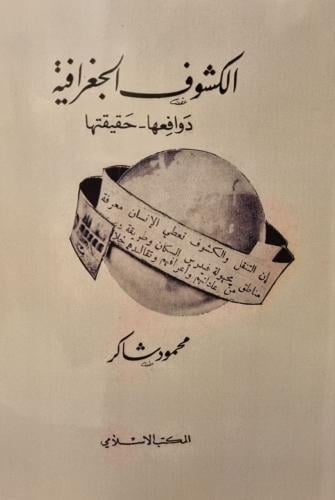 الكشوف الجغرافية
دوافعها - حقيقتها
إن التنقل والكشوف تعطي الإنسان معرفة
مناطق مجهولة فيدرس السكان وطريقة
من عاداتهم وأعرافهم وتقاليدهم خلال
محمود شاكر
المكتب الإسلامي